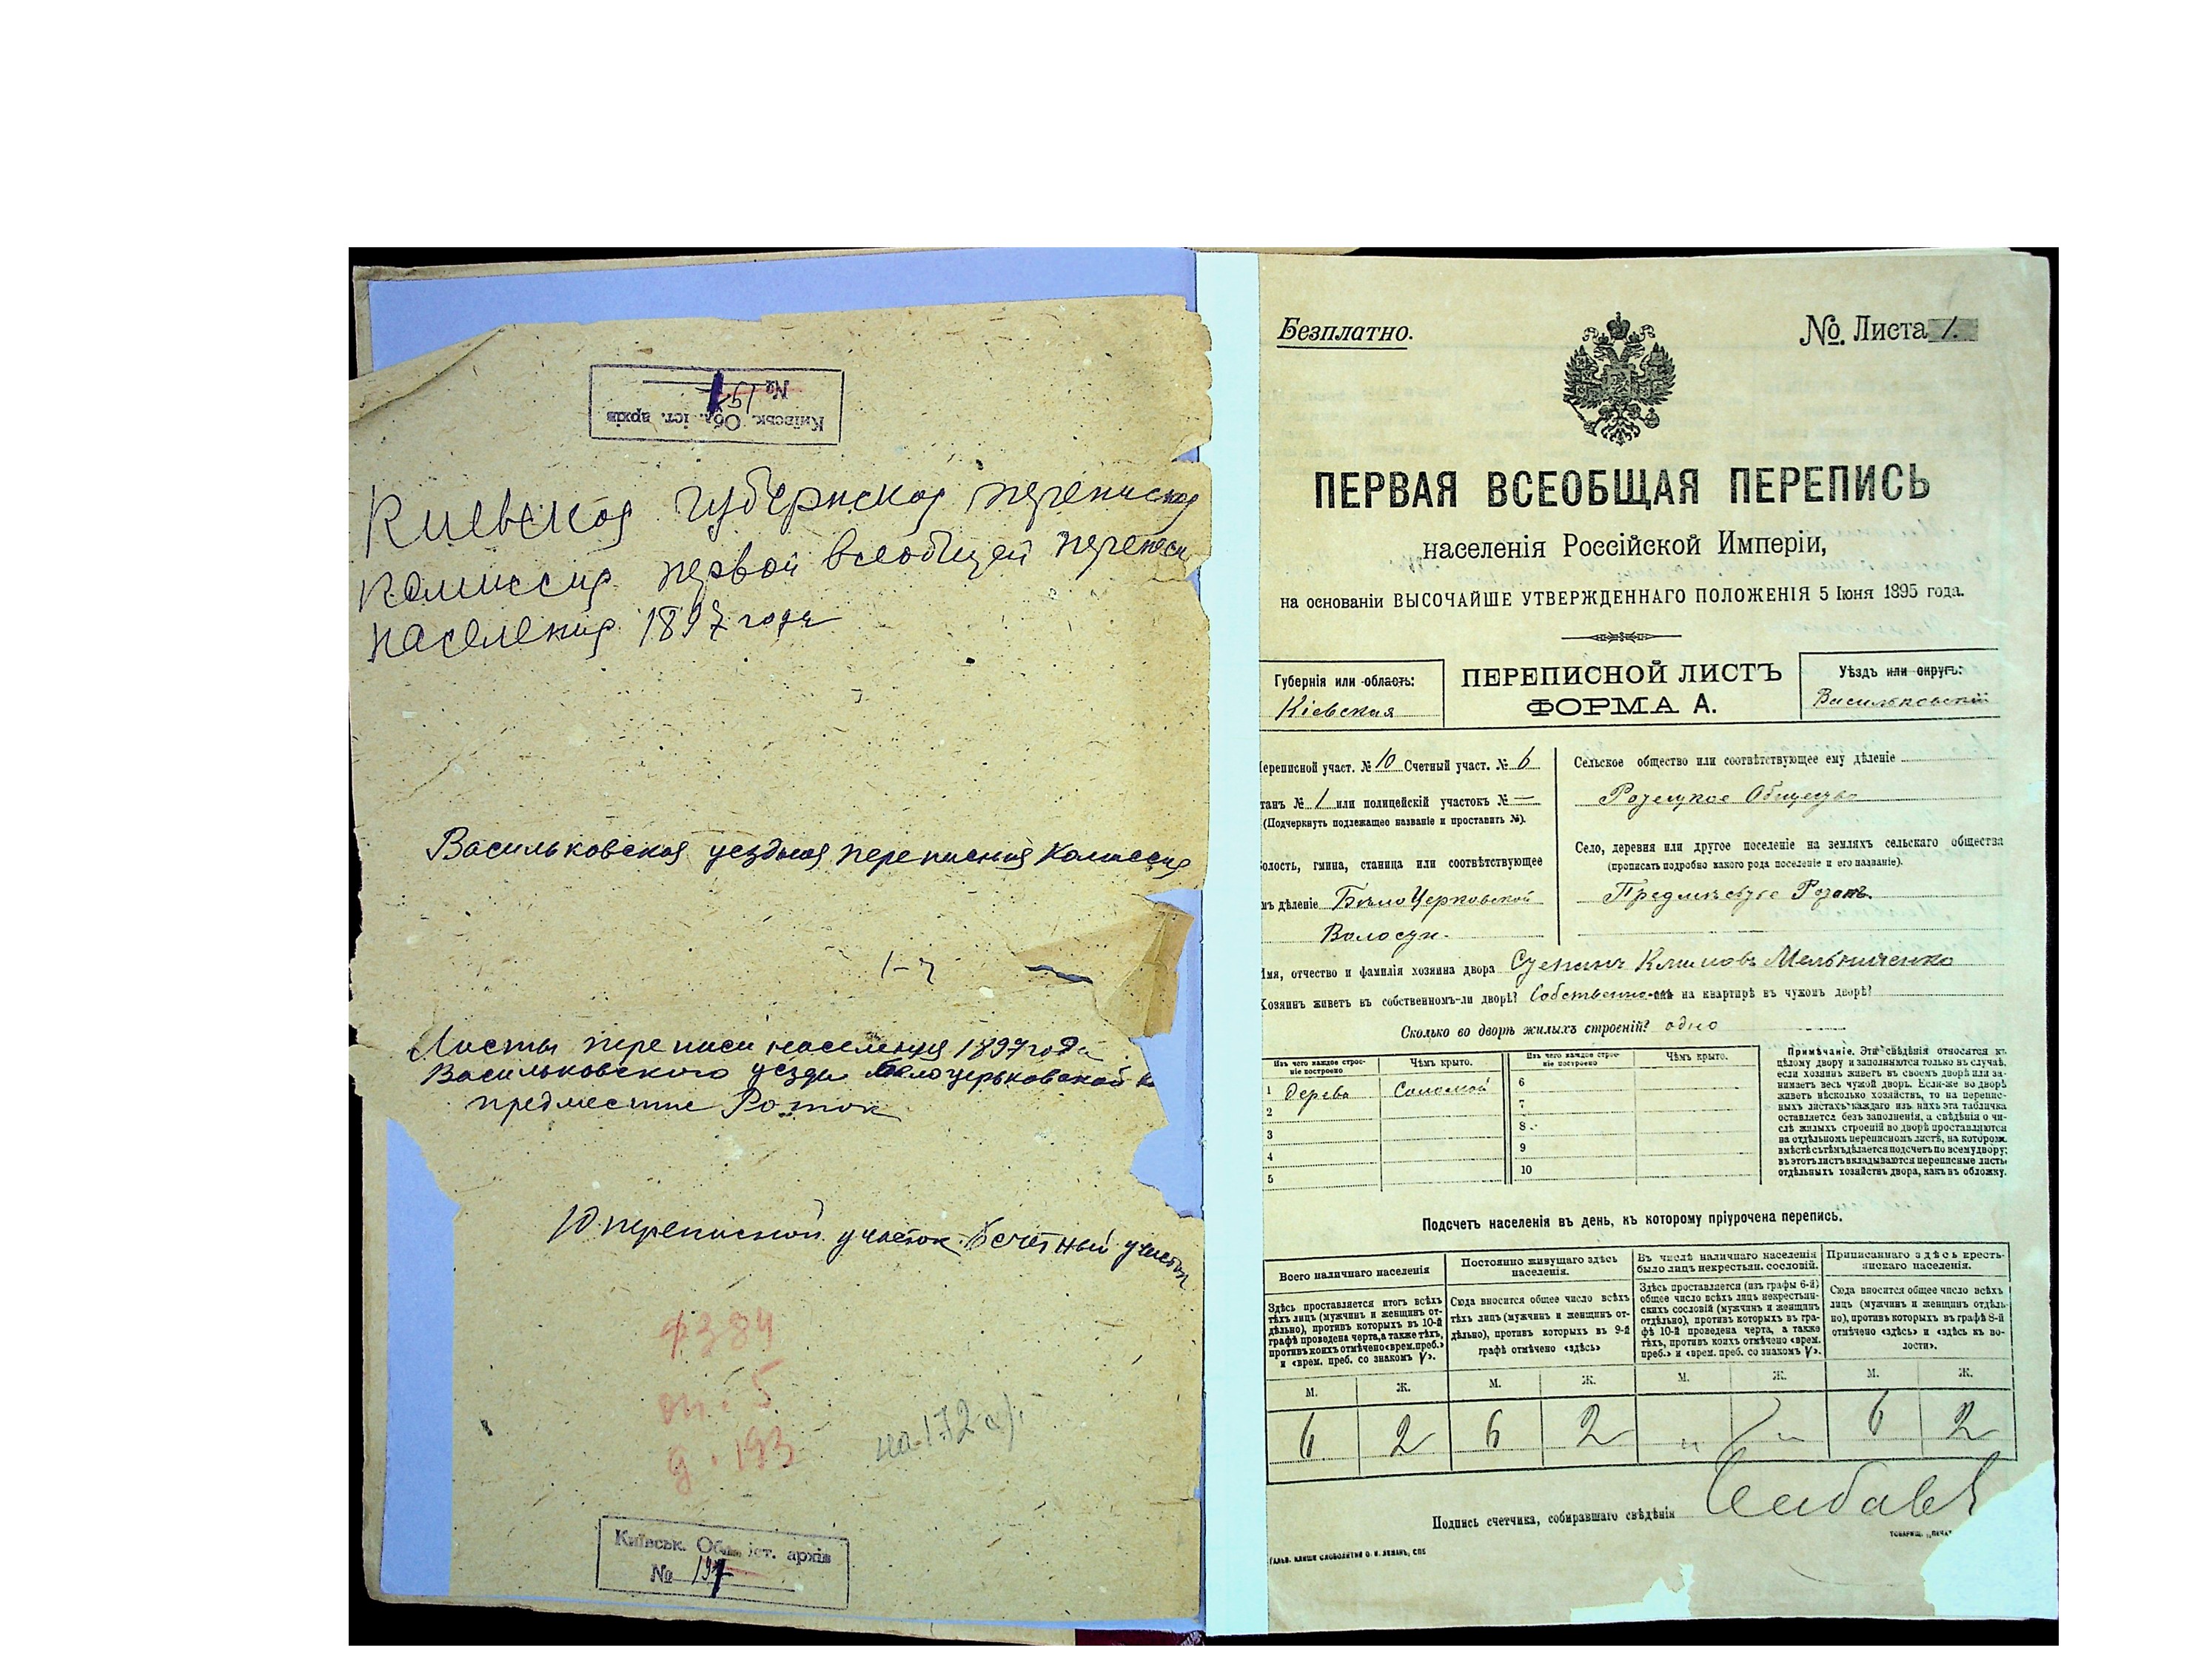 Київськ. Обл. іст. архів
№ 197
Киевская губернская переписная
Комиссия первой всеобщей переписи
населения 1897 года
Васильковская уездная переписная Комиссия
Листы переписи населения 1897 года
Васильковского уезда Белоцерковской
предместие Роток
10 переписной участок 6 счетный участок
ф 384
оп. 5
д. 193
на 172
Київськ. Обл. іст. архів
№ 197
Безплатно.
№ Листа 1.
ПЕРВАЯ ВСЕОБЩАЯ ПЕРЕПИСЬ
населенія Россійской Имперіи,
на основаніи ВЫСОЧАЙШЕ УТВЕРЖДЕННАГО ПОЛОЖЕНІЯ 5 Іюня 1895 года.
Губернія или область:
Кіевская
ПЕРЕПИСНОЙ ЛИСТЪ
ФОРМА А.
Уѣздъ или округъ:
Васильковскій
Переписной участ. № 10 Счетный участ. № 6
танъ № 1 или полицейскій участокъ № —
(Подчеркнуть подлежащее названіе и проставить №).
олость, гмина, станица или соотвѣтствующее
мъ дѣленіе БѣлоЦерковской
Волости.
Сельское общество или соотвѣтствующее ему дѣленіе
Ротецкое Общество
Село, деревня или другое поселеніе на земляхъ сельскаго общества
(прописать подробно какого рода поселеніе и его названіе).
Предмѣстье Ротокъ.
Имя, отчество и фамилія хозяина двора Степанъ Климовъ Мельниченко
Хозяинъ живетъ въ собственномъ-ли дворѣ? Собственномъ на квартирѣ въ чужомъ дворѣ?
Сколько во дворѣ жилыхъ строеній? одно
Изъ чего каждое строеніе построено
Чѣмъ крыто.
Изъ чего каждое строеніе построено
Чѣмъ крыто.
1 дерева Соломой
2
3
4
5
6
7
8
9
10
Примѣчаніе. Эти свѣдѣнія относятся къ
цѣлому двору и заполняются только въ случаѣ,
если хозяинъ живетъ въ своемъ дворѣ или за-
нимаетъ весь чужой дворъ. Если-же во дворѣ
живетъ нѣсколько хозяйствъ, то на перепис-
ныхъ листахъ каждаго изъ нихъ эта табличка
оставляется безъ заполненія, а свѣдѣнія о чи-
слѣ жилыхъ строеній во дворѣ проставляются
на отдѣльномъ переписномъ листѣ, на которомъ
вмѣстѣ съ тѣмъ дѣлается подсчетъ по всему двору;
въ этотъ листъ вкладываются переписные листы
отдѣльныхъ хозяйствъ двора, какъ въ обложку.
Подсчетъ населенія въ день, къ которому пріурочена перепись.
Всего наличнаго населенія
Здѣсь проставляется итогъ всѣхъ
тѣхъ лицъ (мужчинъ и женщинъ от-
дѣльно), противъ которыхъ въ 10-й
графѣ проведена черта, а также тѣхъ,
противъ коихъ отмѣчено «врем. преб.»
и «врем. преб. со знакомъ V».
Постоянно живущаго здѣсь
населенія.
Сюда вносится общее число всѣхъ
тѣхъ лицъ (мужчинъ и женщинъ от-
дѣльно), противъ которыхъ въ 9-й
графѣ отмѣчено «здѣсь»
Въ числѣ наличнаго населенія
было лицъ некрестьян. сословій.
Здѣсь проставляется (изъ графы 6-й)
общее число всѣхъ лицъ некрестьян-
скихъ сословій (мужчинъ и женщинъ
отдѣльно), противъ которыхъ въ гра-
фѣ 10-й проведена черта, а также
тѣхъ, противъ коихъ отмѣчено «врем.
преб.» и «врем. преб. со знакомъ V».
Приписаннаго здѣсь кресть-
янскаго населенія.
Сюда вносится общее число всѣхъ
лицъ (мужчинъ и женщинъ отдѣль-
но), противъ которыхъ въ графѣ 8-й
отмѣчено «здѣсь» и «здѣсь въ во-
лости».
М. Ж. М. Ж. М. Ж. М. Ж.
6 2 6 2 „ „ 6 2
Подпись счетчика, собиравшаго свѣдѣнія
ТОВАРИЩ. „ПЕЧАТ
ГАЛЬВ. КЛИШЕ СЛОВОЛИТНИ О. И. ЛЕМАНЪ, СПБ